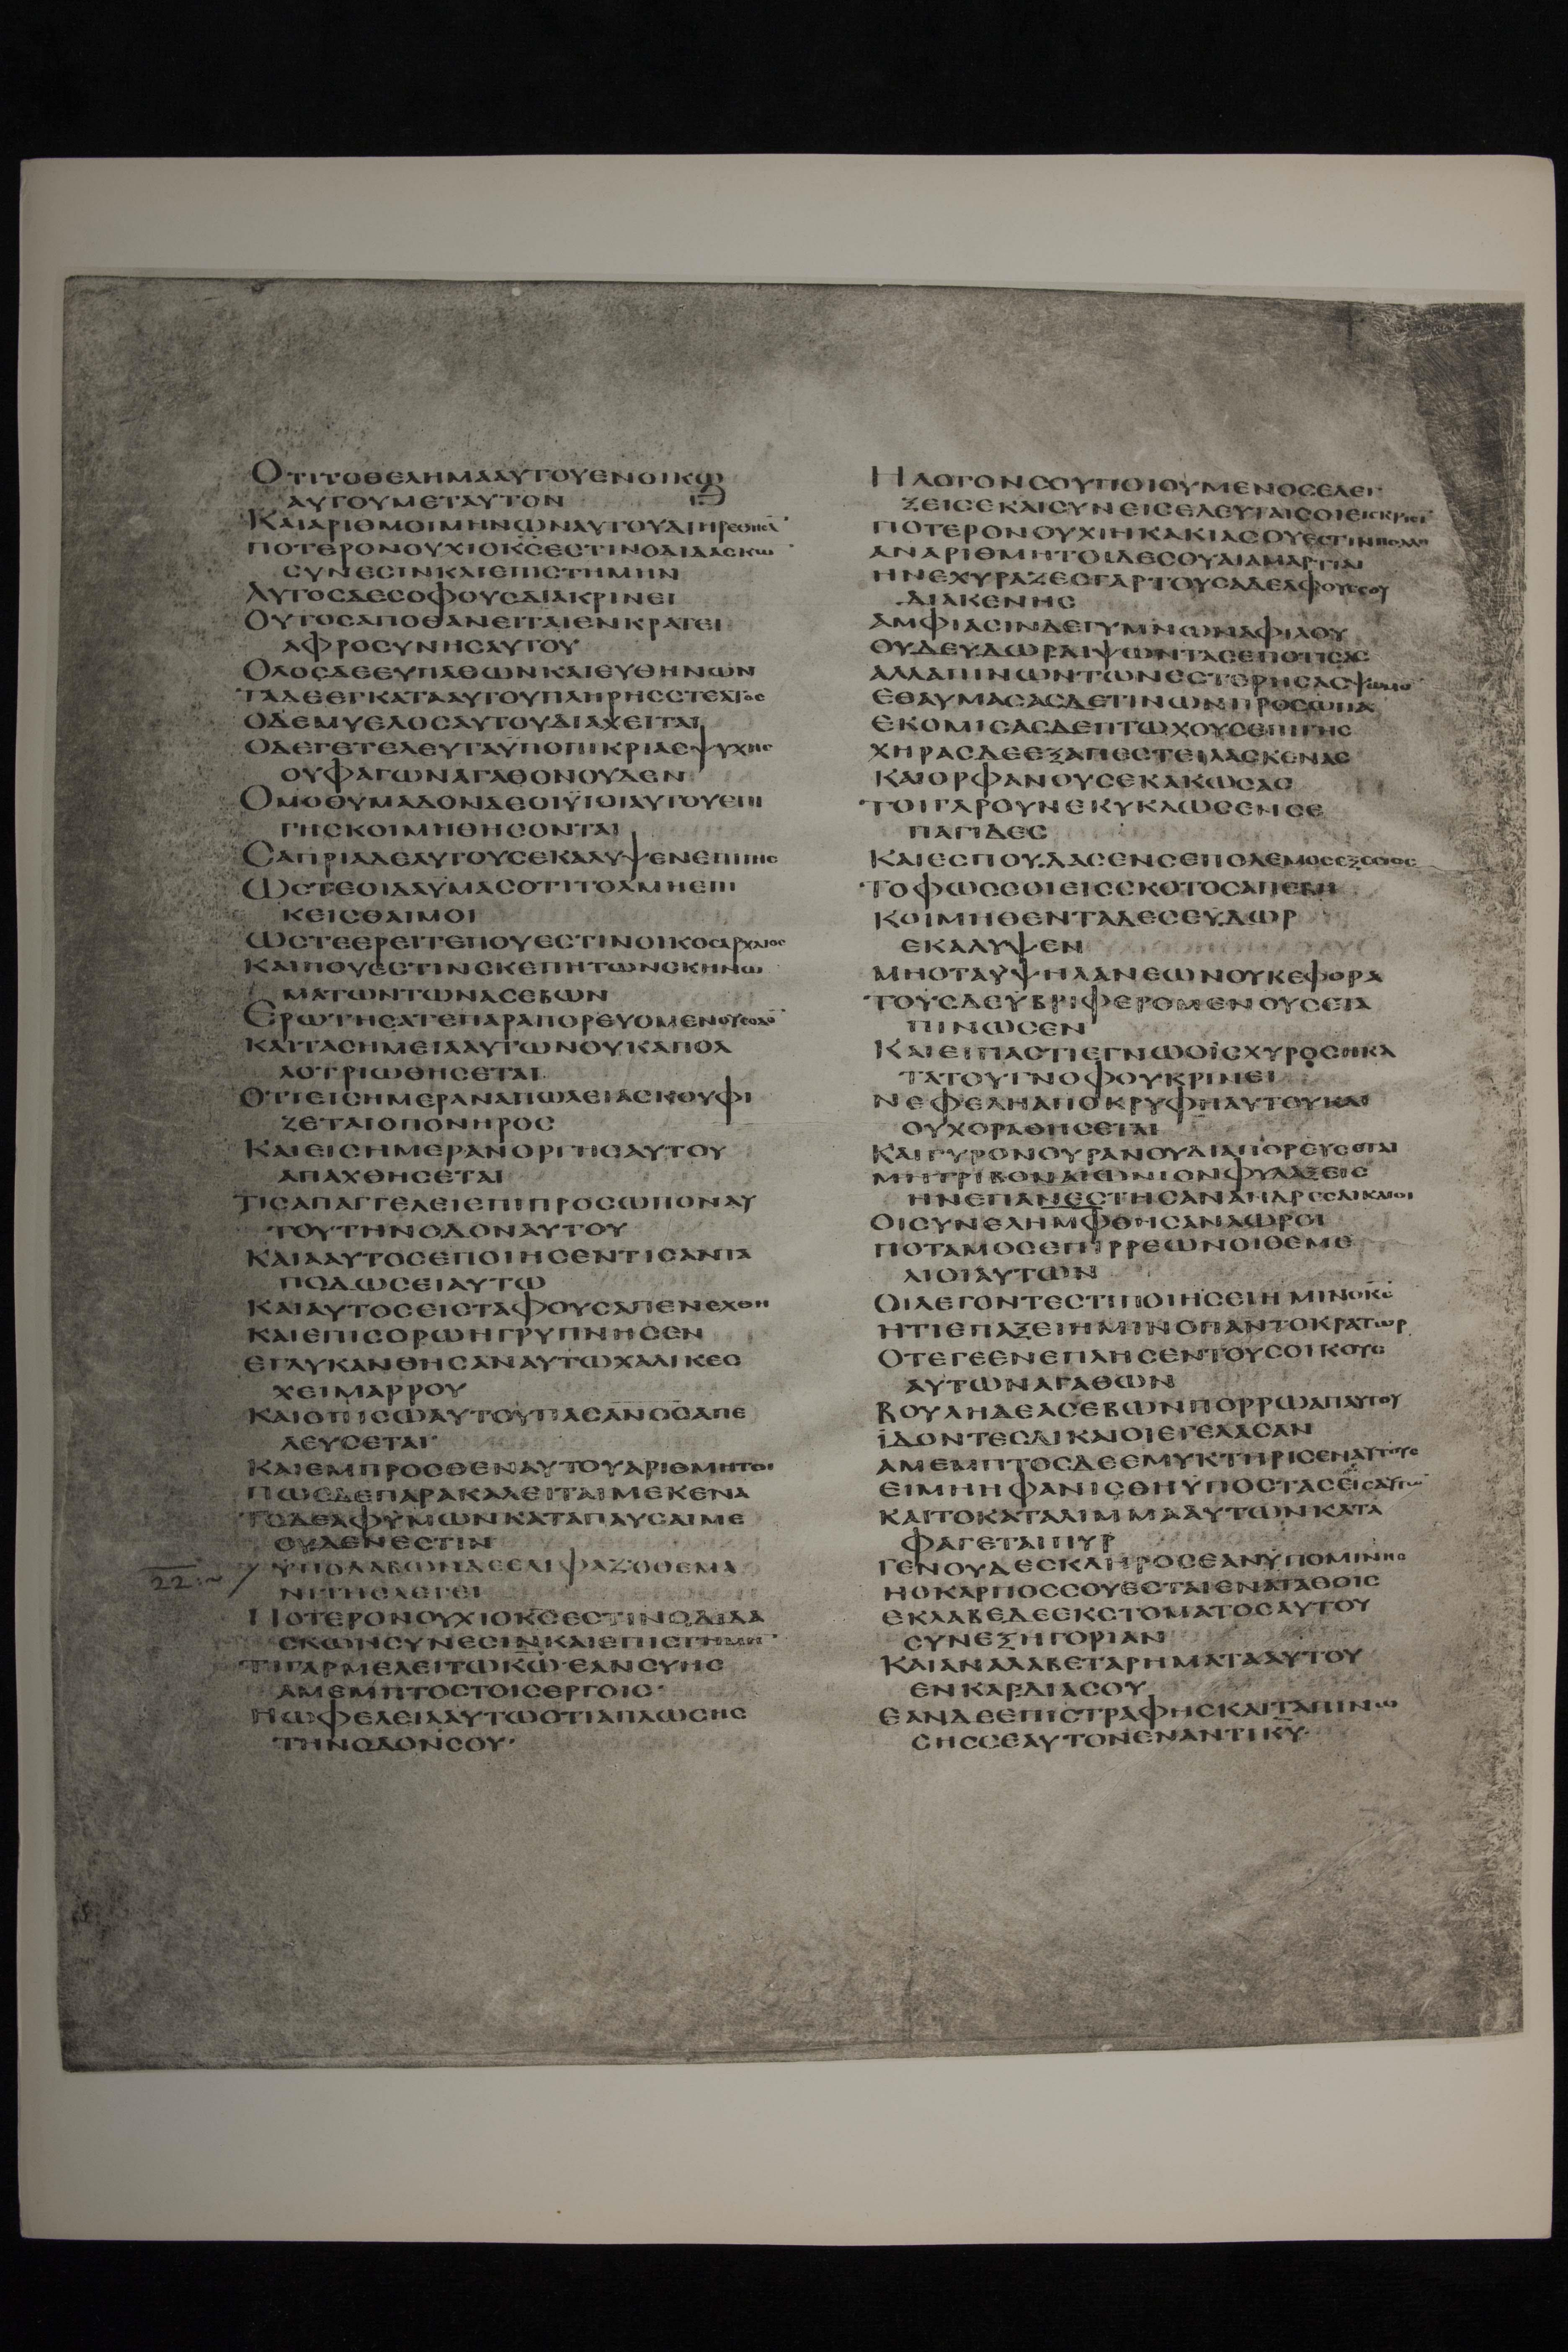 ΟΤΙΤΟΘΕΛΗΜΑΑΥΤΟΥΕΝΟΙΚΩ
ΑΥΤΟΥΜΕΤΑΥΤΟΝ
ΚΑΙΑΡΙΘΜΟΙΜΗΝΩΝΑΥΤΟΥΔΙΗΡΕΘΗΣΑ̅
ΠΟΤΕΡΟΝΟΥΧΙΟΚ̅Σ̅ΕΣΤΙΝΟΔΙΔΑΣΚΩ̅
ΣΥΝΕΣΙΝΚΑΙΕΠΙΣΤΗΜΗΝ
ΑΥΤΟΣΔΕΣΟΦΟΥΣΔΙΑΚΡΙΝΕΙ
ΟΥΤΟΣΑΠΟΘΑΝΕΙΤΑΙΕΝΚΡΑΤΕΙ
ΑΦΡΟΣΥΝΗΣΑΥΤΟΥ
ΟΛΟΣΔΕΕΥΠΑΘΩΝΚΑΙΕΥΘΗΝΩΝ
ΤΑΔΕΕΓΚΑΤΑΑΥΤΟΥΠΛΗΡΗΣΣΤΕΑΤΟΣ
ΟΔΕΜΥΕΛΟΣΑΥΤΟΥΔΙΑΧΕΙΤΑΙ
ΟΔΕΓΕΤΕΛΕΥΤΑΫΠΟΠΙΚΡΙΑΣΨΥΧΗΣ
ΟΥΦΑΓΩΝΑΓΑΘΟΝΟΥΔΕΝ
ΟΜΟΘΥΜΑΔΟΝΔΕΟΙΫΙΟΙΑΥΤΟΥΕΠΙ
ΓΗΣΚΟΙΜΗΘΗΣΟΝΤΑΙ
ΣΑΠΡΙΑΔΕΑΥΤΟΥΣΕΚΑΛΥΨΕΝΕΠΙΓΗΣ
ΩΣΤΕΟΙΔΑΫΜΑΣΟΤΙΤΟΛΜΗΕΠΙ
ΚΕΙΣΘΑΙΜΟΙ
ΩΣΤΕΕΡΕΙΤΕΠΟΥΕΣΤΙΝΟΙΚΟΣΑΡΧΑΙΟΣ
ΚΑΙΠΟΥΕΣΤΙΝΣΚΕΠΗΤΩΝΣΚΗΝΩ
ΜΑΤΩΝΤΩΝΑΣΕΒΩΝ
ΕΡΩΤΗΣΑΤΕΠΑΡΑΠΟΡΕΥΟΜΕΝΟΥΣΟΔΟ̅
ΚΑΙΤΑΣΗΜΕΙΑΑΥΤΩΝΟΥΚΑΠΟΑ
ΛΟΤΡΙΩΘΗΣΕΤΑΙ
ΟΤΙΕΙΣΗΜΕΡΑΝΑΠΩΛΕΙΑΣΚΟΥΦΙ
ΖΕΤΑΙΟΠΟΝΗΡΟΣ
ΚΑΙΕΙΣΗΜΕΡΑΝΟΡΓΗΣΑΥΤΟΥ
ΑΠΑΧΘΗΣΕΤΑΙ
ΤΙΣΑΠΑΓΓΕΛΕΙΕΠΙΠΡΟΣΩΠΟΝΑΥ
ΤΟΥΤΗΝΟΔΟΝΑΥΤΟΥ
ΚΑΙΑΑΥΤΟΣΕΠΟΙΗΣΕΝΤΙΣΑΝΤΑ
ΠΟΔΩΣΕΙΑΥΤΩ
ΚΑΙΑΥΤΟΣΕΙΣΤΑΦΟΥΣΑΠΕΝΕΧΘΗ
ΚΑΙΕΠΙΣΟΡΩΗΓΡΥΠΝΗΣΕΝ
ΕΓΛΥΚΑΝΘΗΣΑΝΑΥΤΩΧΑΛΙΚΕΣ
ΧΕΙΜΑΡΡΟΥ
ΚΑΙΟΠΙΣΩΑΥΤΟΥΠΑΣΑΝ̅Ο̅Σ̅ΑΠΕ
ΛΕΥΣΕΤΑΙ
ΚΑΙΕΜΠΡΟΣΘΕΝΑΥΤΟΥΑΡΙΘΜΗΤΟΙ
ΠΩΣΔΕΠΑΡΑΚΑΛΕΙΤΑΙΜΕΚΕΝΑ
ΤΟΔΕΑΦΫΜΩΝΚΑΤΑΠΑΥΣΑΙΜΕ
ΟΥΔΕΝΕΣΤΙΝ
22
ΫΠΟΛΑΒΩΝΔΕΕΛΙΦΑΖΟΘΕΜΑ
ΝΙΤΗΣΛΕΓΕΙ
ΠΟΤΕΡΟΝΟΥΧΙΟΚ̅Σ̅ΕΣΤΙΝΟΔΙΔΑ
ΣΚΩΝΣΥΝΕΣΙΝΚΑΙΕΠΙΣΤΗΜΗ̅
ΤΙΓΑΡΜΕΛΕΙΤΩΚ̅Ω̅ΕΑΝΣΥΗΣ
ΑΜΕΜΠΤΟΣΤΟΙΣΕΡΓΟΙΣ
ΗΩΦΕΛΕΙΑΑΥΤΩΟΤΙΑΠΛΩΣΗΣ
ΤΗΝΟΔΟΝΣΟΥ
ΗΛΟΓΟΝΣΟΥΠΟΙΟΥΜΕΝΟΣΕΛΕΓ
ΞΕΙΣΕΚΑΙΣΥΝΕΙΣΕΛΕΥΣΕΤΑΙΣΟΙΕΙΣΚΡΙΣΙ̅
ΠΟΤΕΡΟΝΟΥΧΙΗΚΑΚΙΑΣΟΥΕΣΤΙΝΠΟΛΛΗ
ΑΝΑΡΙΘΜΗΤΟΙΔΕΣΟΥΑΙΑΜΑΡΤΙΑΙ
ΗΝΕΧΥΡΑΖΕΣΓΑΡΤΟΥΣΑΔΕΛΦΟΥΣΣΟΥ
ΔΙΑΚΕΝΗΣ
ΑΜΦΙΑΣΙΝΔΕΓΥΜΝΩΝΑΦΙΛΟΥ
ΟΥΔΕΥΔΩΡΔΙΨΩΝΤΑΣΕΠΟΤΙΣΑΣ
ΑΛΛΑΠΙΝΩΝΤΩΝΕΣΤΕΡΗΣΑΣΨΩΜΟ̅
ΕΘΑΥΜΑΣΑΣΔΕΤΙΝΩΝΠΡΟΣΩΠΑ
ΕΚΟΜΙΣΑΣΔΕΠΤΩΧΟΥΣΕΠΙΓΗΣ
ΧΗΡΑΣΔΕΕΞΑΠΕΣΤΕΙΛΑΣΚΕΝΑΣ
ΚΑΙΟΡΦΑΝΟΥΣΕΚΑΚΩΣΑΣ
ΤΟΙΓΑΡΟΥΝΕΚΥΚΛΩΣΕΝΣΕ
ΠΑΓΙΔΕΣ
ΚΑΙΕΣΠΟΥΔΑΣΕΝΣΕΠΟΛΕΜΟΣΕΞΕΣΙΟΣ
ΤΟΦΩΣΣΟΙΕΙΣΣΚΟΤΟΣΑΠΕΒΗ
ΚΟΙΜΗΘΕΝΤΑΔΕΣΕΫΔΩΡ
ΕΚΑΛΥΨΕΝ
ΜΗΟΤΑΫΨΗΛΑΝΕΩΝΟΥΚΕΦΟΡΑ
ΤΟΥΣΔΕΫΒΡΙΦΕΡΟΜΕΝΟΥΣΕΤΑ
ΠΙΝΩΣΕΝ
ΚΑΙΕΙΠΑΣΤΙΕΓΝΩΟΙΣΧΥΡΟΣΗΚΑ
ΤΑΤΟΥΓΝΟΦΟΥΚΡΙΝΕΙ
ΝΕΦΕΛΗΑΠΟΚΡΥΦΗΑΥΤΟΥΚΑΙ
ΟΥΧΟΡΑΘΗΣΕΤΑΙ
ΚΑΙΓΥΡΟΝΟΥΡΑΝΟΥΔΙΑΠΟΡΕΥΣΕΤΑΙ
ΜΗΤΡΙΒΟΝΑΙΩΝΙΟΝΦΥΛΑΞΕΙΣ
ΗΝΕΠΑΤΗΣΑΝΑΝΔΡΕΣΔΙΚΑΙΟΙ
ΟΙΣΥΝΕΛΗΜΦΘΗΣΑΝΑΩΡΟΙ
ΠΟΤΑΜΟΣΕΠΙΡΡΕΩΝΟΙΘΕΜΕ
ΛΙΟΙΑΥΤΩΝ
ΟΙΛΕΓΟΝΤΕΣΤΙΠΟΙΗΣΕΙΗΜΙΝΟΚ̅Σ̅
ΗΤΙΕΠΑΞΕΙΗΜΙΝΟΠΑΝΤΟΚΡΑΤΩΡ
ΟΤΕΓΕΕΝΕΠΛΗΣΕΝΤΟΥΣΟΙΚΟΥΣ
ΑΥΤΩΝΑΓΑΘΩΝ
ΒΟΥΛΗΔΕΑΣΕΒΩΝΠΟΡΡΩΑΠΑΥΤΟΥ
ΪΔΟΝΤΕΣΔΙΚΑΙΟΙΕΓΕΛΑΣΑΝ
ΑΜΕΜΠΤΟΣΔΕΕΜΥΚΤΗΡΙΣΕΝΑΥΤΟΥΣ
ΕΙΜΗΗΦΑΝΙΣΘΗΫΠΟΣΤΑΣΕΙΣΑΥΤΩ̅
ΚΑΙΤΟΚΑΤΑΛΙΜΜΑΑΥΤΩΝΚΑΤΑ
ΦΑΓΕΤΑΙΠΥΡ
ΓΕΝΟΥΔΕΣΚΛΗΡΟΣΕΑΝΫΠΟΜΙΝΗΣ
ΗΟΚΑΡΠΟΣΣΟΥΕΣΤΑΙΕΝΑΓΑΘΟΙΣ
ΕΚΛΑΒΕΔΕΕΚΣΤΟΜΑΤΟΣΑΥΤΟΥ
ΣΥΝΕΞΗΓΟΡΙΑΝ
ΚΑΙΑΝΑΛΑΒΕΤΑΡΗΜΑΤΑΑΥΤΟΥ
ΕΝΚΑΡΔΙΑΣΟΥ
ΕΑΝΔΕΕΠΙΣΤΡΑΦΗΣΚΑΙΤΑΠΙΝΩ
ΣΗΣΣΕΑΥΤΟΝΕΝΑΝΤΙΚ̅Υ̅